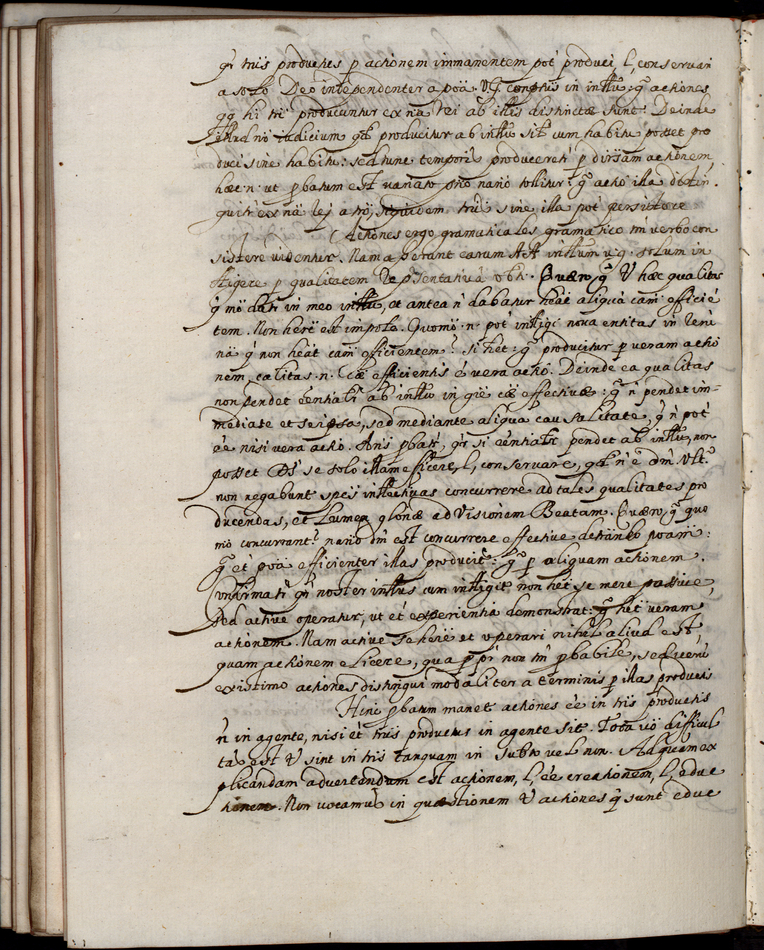 qr̃ tñis productus p actionem immanentem pot' produci l, conservari
a solo Deo independenter a poã. Vg. conceptus in intu: q̃ actiones
qq hi tñi producuntur ex nã rei ab illis distinctæ sunt. Deinde
Illud nõ iudicium qd producitur ab intu sit cum habitu posset pro
duci sine habitu: sed tunc temporis produceret' p diversam actionem
hæc n. ut pbatum est variato pño nãrio tollitur: q̃ actio illa distin
guitur ex nã rej a tño, siquidem tñus sine illa pot' persistere
Actiones ergo gramaticales gramatico tm̃ verbo con
sistere videntur. Nam asserant earum AA intum v.g. solum in
tligere p qualitatem repsentativã obti. Quæro, q̃ V hæc qualitas
q̃ mõ dari in meo intu, et antea ñ dabatur heat aliquã cam efficiẽ
tem. Non herẽ est impole. Quomõ n. pot' intligi nova entitas in reru
nã q̃ non heat cam efficientem? si het: q̃ producitur p veram actio
nem, calitas .n. cæ efficientis e vera actio. Deinde ea qualitas
non pendet eentialr ab intu in gñe cæ effectivæ: q̃ ñ pendet im-
mediate et se ipsa, sed mediante aliqua causalitate, q̃ ñ pot'
ee nisi vera actio. Añs pbatr, qr̃ si eentialr pendet ab intu, non
posset Ds se solo illam efficere, l, conservare, qd ñ e dm̃. Vltˢ
non negabunt speis intlectivas concurrere ad tales qualitates pro
ducendas, et Lumen gloriæ ad Visionem Beatam. Quæro, q̃ quo
mõ concurrant? nãrio dm̃ est concurrere effective determinando poam:
q̃ et poã efficienter illas producit: q̃ p aliquam actionem.
Confirmatr qr̃ noster intus cum intligit non het se mere passive,
sed active operatur, ut et experientia demonstrat: q̃ het veram
actionem. Nam active se here et operari nihil aliud est,
quam actionem elicere, qua ppr non tm̃ pbabile, sed verũ
existimo actiones distingui modaliter a terminis p illas productis
Hinc pbatum manet actiones ee in tñis productis
ñ in agente, nisi et tñus productus in agente sit. Tota vo difficul
tas est V sint in tñis tanquam in subto vel non. Ad quam ex
plicandam advertendum est actionem, l, ee creationem, l, educ
tionem. Non vocamus in quæstionem V actiones q̃ sunt educ